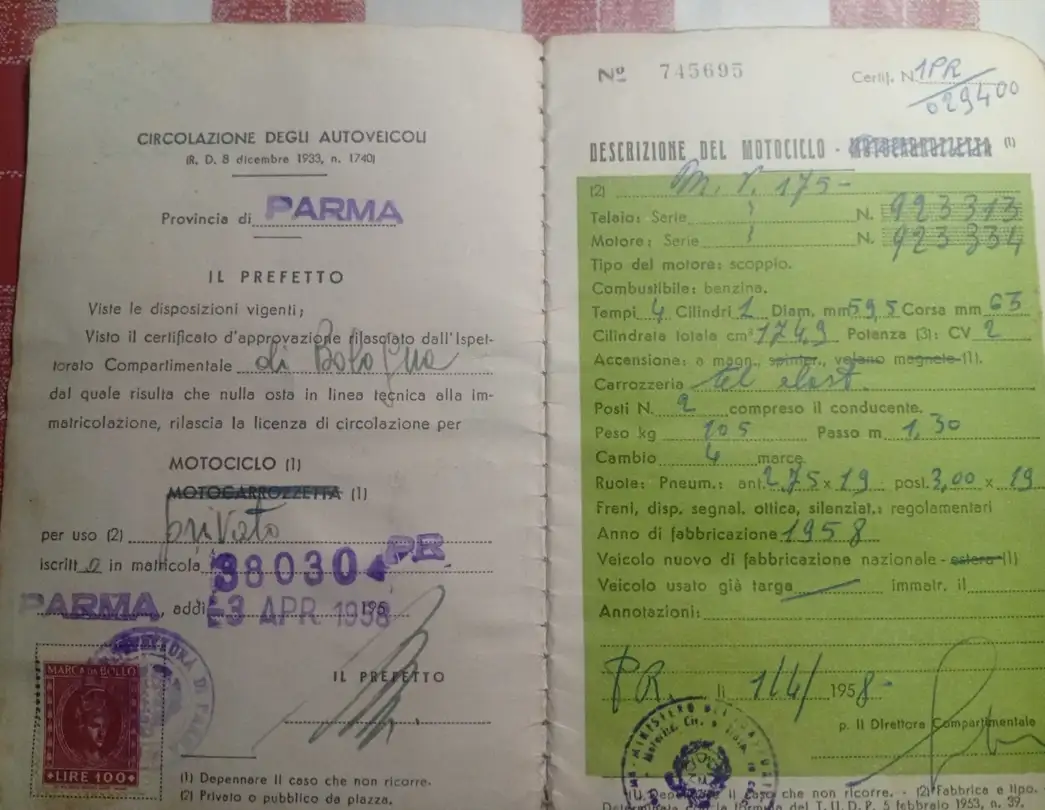 CIRCOLAZIONE DEGLI AUTOVEICOLI
(R. D. 8 dicembre 1933, n. 1740)
Provincia di PARMA
IL PREFETTO
Viste le disposizioni vigenti;
Visto il certificato d'approvazione rilasciato dall'Ispet-
torato Compartimentale di Bologna
dal quale risulta che nulla osta in linea tecnica alla im-
matricolazione, rilascia la licenza di circolazione per
MOTOCICLO (1)
MOTOCARROZZETTA (1)
per uso (2) privato
iscritt o in matricola 38030 PR
PARMA, addì 3 APR 1958
IL PREFETTO
MARCA DA BOLLO
LIRE 100
(1) Depennare il caso che non ricorre.
(2) Privato o pubblico da piazza.
Nº 745695
Certif. N. 1PR/029400
DESCRIZIONE DEL MOTOCICLO - MOTOCARROZZETTA (1)
(2) M. V. 175-
Telaio: Serie N. 923313
Motore: Serie N. 923334
Tipo del motore: scoppio.
Combustibile: benzina.
Tempi 4 Cilindri 1 Diam. mm 59,5 Corsa mm 63
Cilindrata totale cm³ 174,9 Potenza (3): CV 2
Accensione: a magn., spinter., volano magnete (1).
Carrozzeria tel elast.
Posti N. 2 compreso il conducente.
Peso kg 105 Passo m 1,30
Cambio 4 marce
Ruote: Pneum.: ant. 2,75 x 19 post. 3,00 x 19
Freni, disp. segnal. ottica, silenziat.: regolamentari
Anno di fabbricazione 1958
Veicolo nuovo di fabbricazione nazionale - estera (1)
Veicolo usato già targa immatr. il
Annotazioni:
PR. li 1/4/ 1958-
p. Il Direttore Compartimentale
MINISTERO DEI
(1) Depennare il caso che non ricorre. - (2) Fabbrica e tipo.
formula del T. U. D. P. 5 febbraio 1953, n. 39.